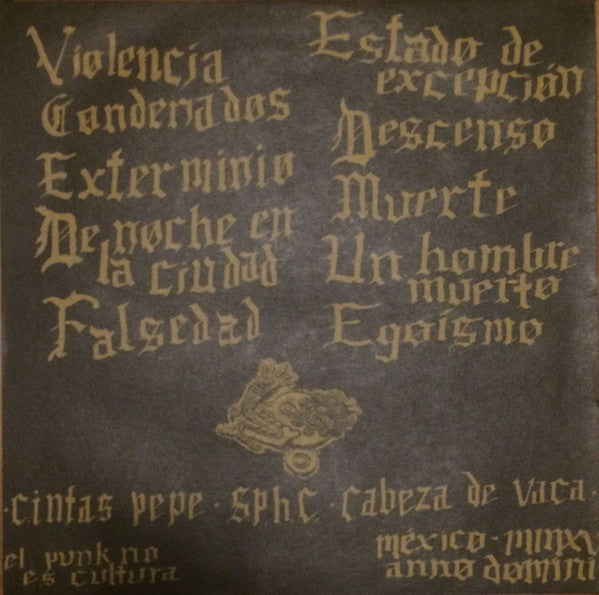 Violencia
Condenados
Exterminio
De noche en
la ciudad
Falsedad
Estado de
excepción
Descenso
Muerte
Un hombre
muerto
Egoísmo
·cintas pepe · sphc · cabeza de vaca ·
el punk no
es cultura
méxico - mmxv
anno domini